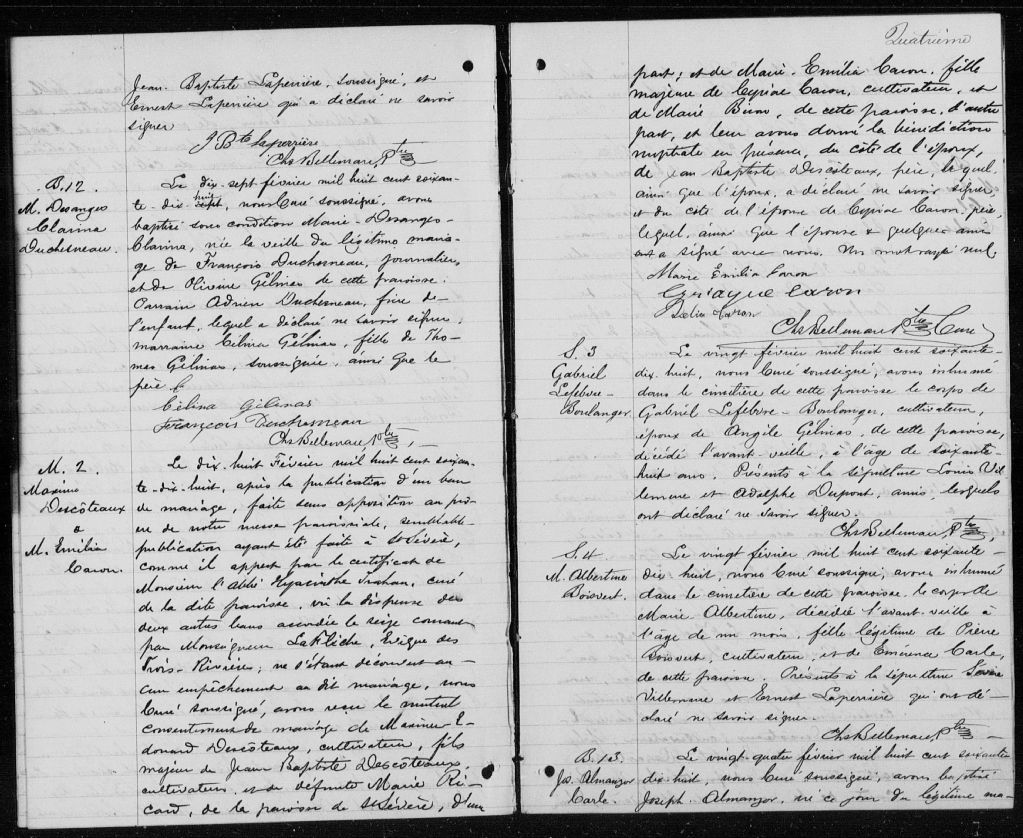 Jean-Baptiste Laperrière, soussigné, et
Ernest Laperrière qui a déclaré ne savoir
signer
J Bte Laperrière
Chs Bellemare Ptre
B. 12.
M. Desanges
Clarina
Duchesneau.
Le dix-sept février mil huit cent soixan-
te-dix-huit, nous Curé soussigné, avons
baptisé sous condition Marie-Desanges-
Clarina, née la veille du légitime maria-
ge de François Duchesneau, journalier,
et de Olivine Gélinas de cette paroisse.
Parrain Adrien Duchesneau, frère de
l'enfant, lequel a déclaré ne savoir signer,
marraine Célina Gélinas, fille de Tho-
mas Gélinas, soussignée, ainsi que le
père
Célina Gélinas
François Duchesneau
Chs Bellemare Ptre
M. 2
Maxime
Descôteaux
&
M. Emilia
Caron.
Le dix-huit Février mil huit cent soixan-
te-dix-huit, après la publication d'un ban
de mariage, faite sans opposition au prô-
ne de notre messe paroissiale, semblable
publication ayant été faite à St Sévère,
comme il appert par le certificat de
Monsieur l'abbé Hyacinthe Trahan, curé
de la dite paroisse, vu la dispense des
deux autres bans accordée le seize courant
par Monseigneur Laflèche, Evêque des
Trois-Rivières; ne s'étant découvert au-
cun empêchement au dit mariage, nous
Curé soussigné, avons reçu le mutuel
consentement de mariage de Maxime E-
douard Descôteaux, cultivateur, fils
majeur de Jean Baptiste Descôteaux,
cultivateur, et de défunte Marie Ri-
card, de la paroisse de St Sévère, d'une
Quatrième
part; et de Marie-Emilia Caron, fille
majeure de Cyriac Caron, cultivateur, et
de Marie, de cette paroisse, d'autre
part, et leur avons donné la bénédiction
nuptiale en présence, du côté de l'époux,
de Jean Baptiste Descôteaux, père, lequel
ainsi que l'époux, a déclaré ne savoir signer
et du côté de l'épouse de Cyriac Caron, père,
lequel, ainsi que l'épouse & quelques amis
ont signé avec nous. Un mot rayé nul.
Marie Emilia Caron
Caron
Caron
Chs Bellemare Ptre Curé
S. 3
Gabriel
Lefebvre-
Boulanger
Le vingt février mil huit cent soixante-
dix-huit, nous Curé soussigné, avons inhumé
dans le cimetière de cette paroisse le corps de
Gabriel Lefebvre-Boulanger, cultivateur,
époux de Angèle Gélinas, de cette paroisse,
décédé l'avant-veille, à l'âge de soixante-
huit ans. Présents à la sépulture Louis Vil-
lemure et Adolphe Dupont, amis, lesquels
ont déclaré ne savoir signer.
Chs Bellemare Ptre
S. 4
M. Albertine
Boisvert.
Le vingt février mil huit cent soixante-
dix-huit, nous Curé soussigné, avons inhumé
dans le cimetière de cette paroisse le corps de
Marie Albertine, décédée l'avant-veille à
l'âge de un mois, fille légitime de Pierre
Boisvert, cultivateur, et de Emérence Carle,
de cette paroisse. Présents à la sépulture Sévère
Villemure et Ernest Laperrière qui ont dé-
claré ne savoir signer.
Chs Bellemare Ptre
B. 13.
Jos. Almanzor
Carle.
Le vingt-quatre février mil huit cent soixante
dix-huit, nous Curé soussigné, avons baptisé
Joseph-Almanzor, né ce jour du légitime ma-